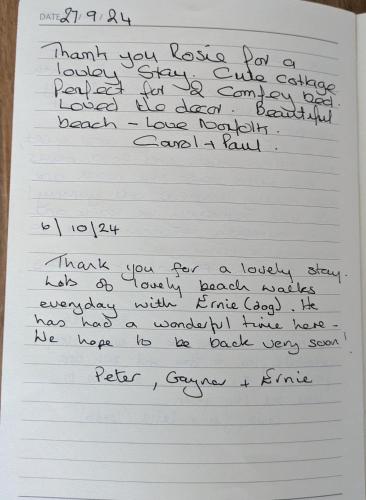 DATE 27/9/24
Thank you Rosie for a
lovley stay. Cute cottage
Perfect for 2 Comfey bed.
Loved the decor. Beautiful
beach - Love Norfolk.
Carol + Paul.
6/10/24
Thank you for a lovely stay.
Lots of lovely beach walks
everyday with Ernie (dog). He
has had a wonderful time here -
We hope to be back very soon!
Peter, Gaynor + Ernie